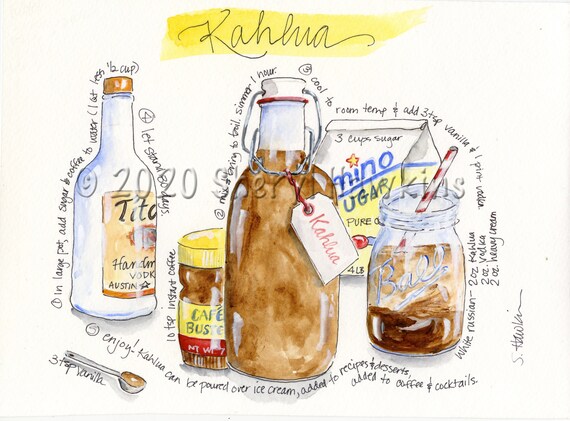 Kahlua
① In large pot, add sugar & coffee to water (1 qt
½ cup)
② mix & bring to boil. simmer 1 hour.
③ cool to
room temp & add 3 tsp vanilla &
1 pint vodka.
④ let stand 30 days.
⑤ enjoy! Kahlua can be poured over ice cream, added to recipes & desserts,
added to coffee & cocktails.
3 cups sugar
mino
UGAR
PURE
4 LB
Tito
Handm
VODK
AUSTIN
10 tsp instant coffee
CAFÉ
BUSTE
NET WT 7
Kahlua
Ball
3 tsp vanilla
White russian- 2oz Kahlua
2 oz vodka
2 oz heavy cream
S. Hawkin
© 2020 Sher